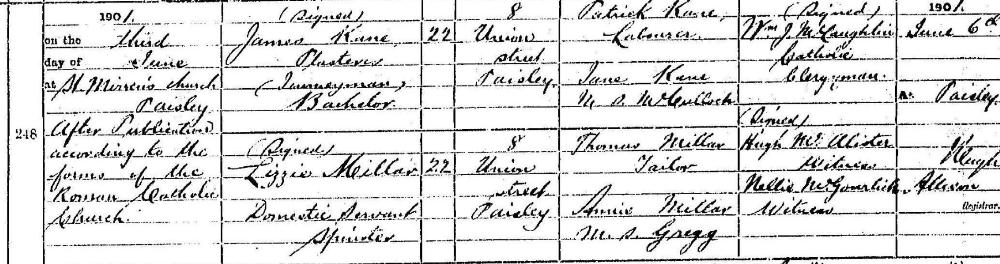 248
1901.
on the third
day of June
at St. Mirren's church
Paisley
After Publication
according to the
forms of the
Roman Catholic
Church.
(Signed)
James Kane
Plasterer
(Journeyman)
Bachelor
(Signed)
Lizzie Millar
Domestic Servant
Spinster
22
22
8
Union
street
Paisley.
8
Union
street
Paisley
Patrick Kane,
Labourer.
Jane Kane
M. S. McCulloch
Thomas Millar
Tailor
Annie Millar
M. S. Gregg
(Signed)
Wm J. McLaughlin
Catholic
Clergyman.
(Signed)
Hugh McAlister
Witness
Nellie McGourlick
Witness
1901.
June 6th
At Paisley.
Hugh
Allison
Registrar.